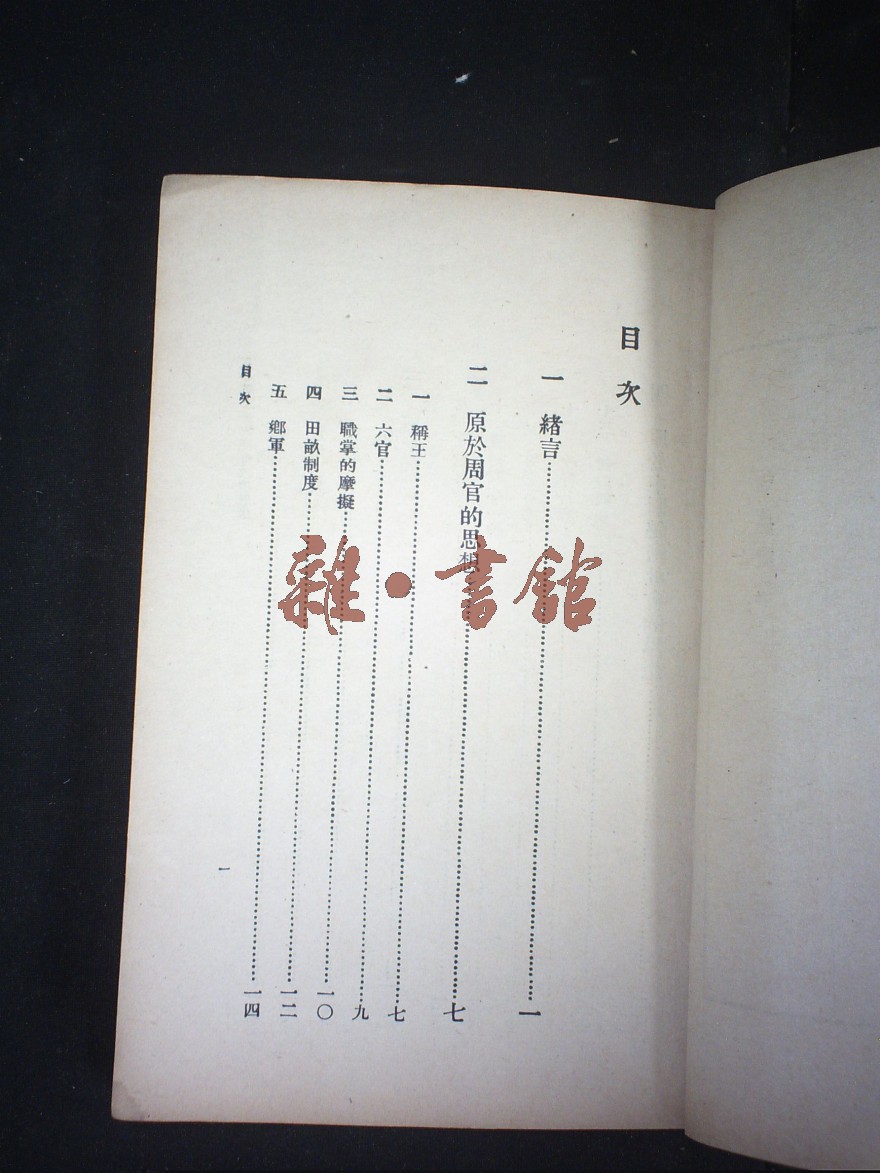 目次
一 緒言……一
二 原於周官的思想……七
一 稱王……七
二 六官……九
三 職掌的摩擬……一〇
四 田畝制度……一二
五 鄉軍……一四
目次
一
雜·書館